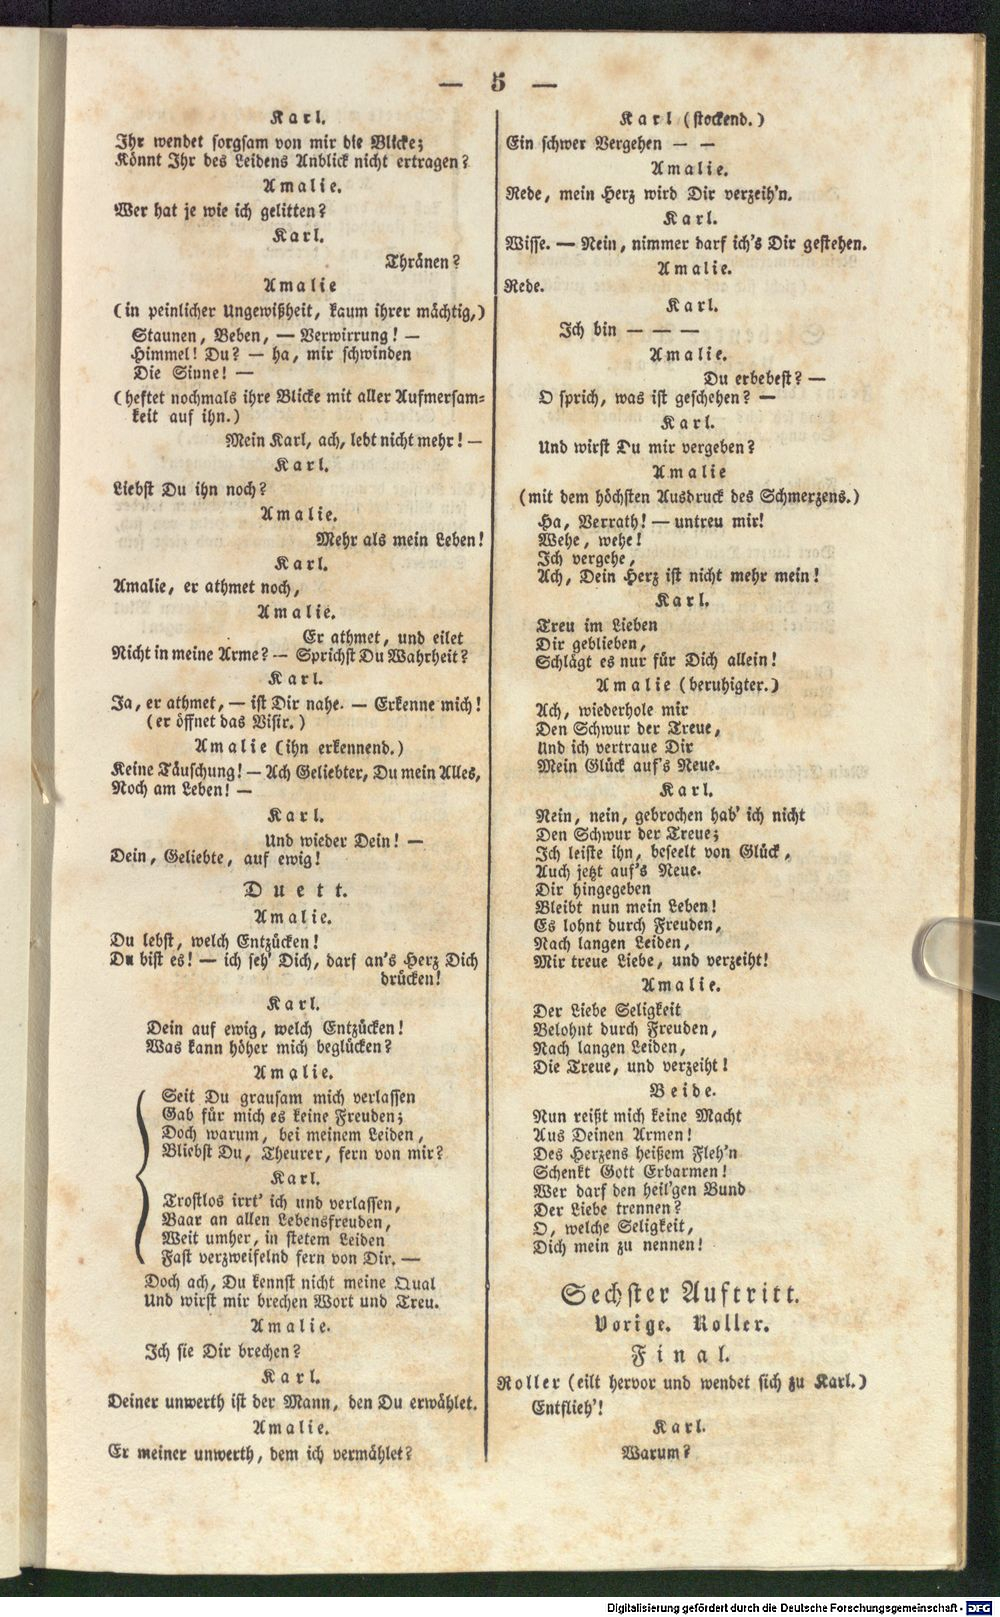 — 5 —
Karl.
Ihr wendet sorgsam von mir die Blicke;
Könnt Ihr des Leidens Anblick nicht ertragen?
Amalie.
Wer hat je wie ich gelitten?
Karl.
Thränen?
Amalie
(in peinlicher Ungewißheit, kaum ihrer mächtig,)
Staunen, Beben, — Verwirrung! —
Himmel! Du? — ha, mir schwinden
Die Sinne! —
(heftet nochmals ihre Blicke mit aller Aufmersam-
keit auf ihn.)
Mein Karl, ach, lebt nicht mehr! —
Karl.
Liebst Du ihn noch?
Amalie.
Mehr als mein Leben!
Karl.
Amalie, er athmet noch,
Amalie.
Er athmet, und eilet
Nicht in meine Arme? — Sprichst Du Wahrheit?
Karl.
Ja, er athmet, — ist Dir nahe. — Erkenne mich!
(er öffnet das Visir.)
Amalie (ihn erkennend.)
Keine Täuschung! — Ach Geliebter, Du mein Alles,
Noch am Leben! —
Karl.
Und wieder Dein! —
Dein, Geliebte, auf ewig!
Duett.
Amalie.
Du lebst, welch Entzücken!
Du bist es! — ich seh' Dich, darf an's Herz Dich
drücken!
Karl.
Dein auf ewig, welch Entzücken!
Was kann höher mich beglücken?
Amalie.
Seit Du grausam mich verlassen
Gab für mich es keine Freuden;
Doch warum, bei meinem Leiden,
Bliebst Du, Theurer, fern von mir?
Karl.
Trostlos irrt' ich und verlassen,
Baar an allen Lebensfreuden,
Weit umher, in stetem Leiden
Fast verzweifelnd fern von Dir. —
Doch ach, Du kennst nicht meine Qual
Und wirst mir brechen Wort und Treu.
Amalie.
Ich sie Dir brechen?
Karl.
Deiner unwerth ist der Mann, den Du erwählet.
Amalie.
Er meiner unwerth, dem ich vermählet?
Karl (stockend.)
Ein schwer Vergehen — —
Amalie.
Rede, mein Herz wird Dir verzeih'n.
Karl.
Wisse. — Nein, nimmer darf ich's Dir gestehen.
Amalie.
Rede.
Karl.
Ich bin — — —
Amalie.
Du erbebest? —
O sprich, was ist geschehen? —
Karl.
Und wirst Du mir vergeben?
Amalie
(mit dem höchsten Ausdruck des Schmerzens.)
Ha, Verrath! — untreu mir!
Wehe, wehe!
Ich vergehe,
Ach, Dein Herz ist nicht mehr mein!
Karl.
Treu im Lieben
Dir geblieben,
Schlägt es nur für Dich allein!
Amalie (beruhigter.)
Ach, wiederhole mir
Den Schwur der Treue,
Und ich vertraue Dir
Mein Glück auf's Neue.
Karl.
Nein, nein, gebrochen hab' ich nicht
Den Schwur der Treue;
Ich leiste ihn, beseelt von Glück,
Auch jetzt auf's Neue.
Dir hingegeben
Bleibt nun mein Leben!
Es lohnt durch Freuden,
Nach langen Leiden,
Mir treue Liebe, und verzeiht!
Amalie.
Der Liebe Seligkeit
Belohnt durch Freuden,
Nach langen Leiden,
Die Treue, und verzeiht!
Beide.
Nun reißt mich keine Macht
Aus Deinen Armen!
Des Herzens heißem Fleh'n
Schenkt Gott Erbarmen!
Wer darf den heil'gen Bund
Der Liebe trennen?
O, welche Seligkeit,
Dich mein zu nennen!
Sechster Auftritt.
Vorige. Roller.
Final.
Roller (eilt hervor und wendet sich zu Karl.)
Entflieh'!
Karl.
Warum?
Digitalisierung gefördert durch die Deutsche Forschungsgemeinschaft - DFG